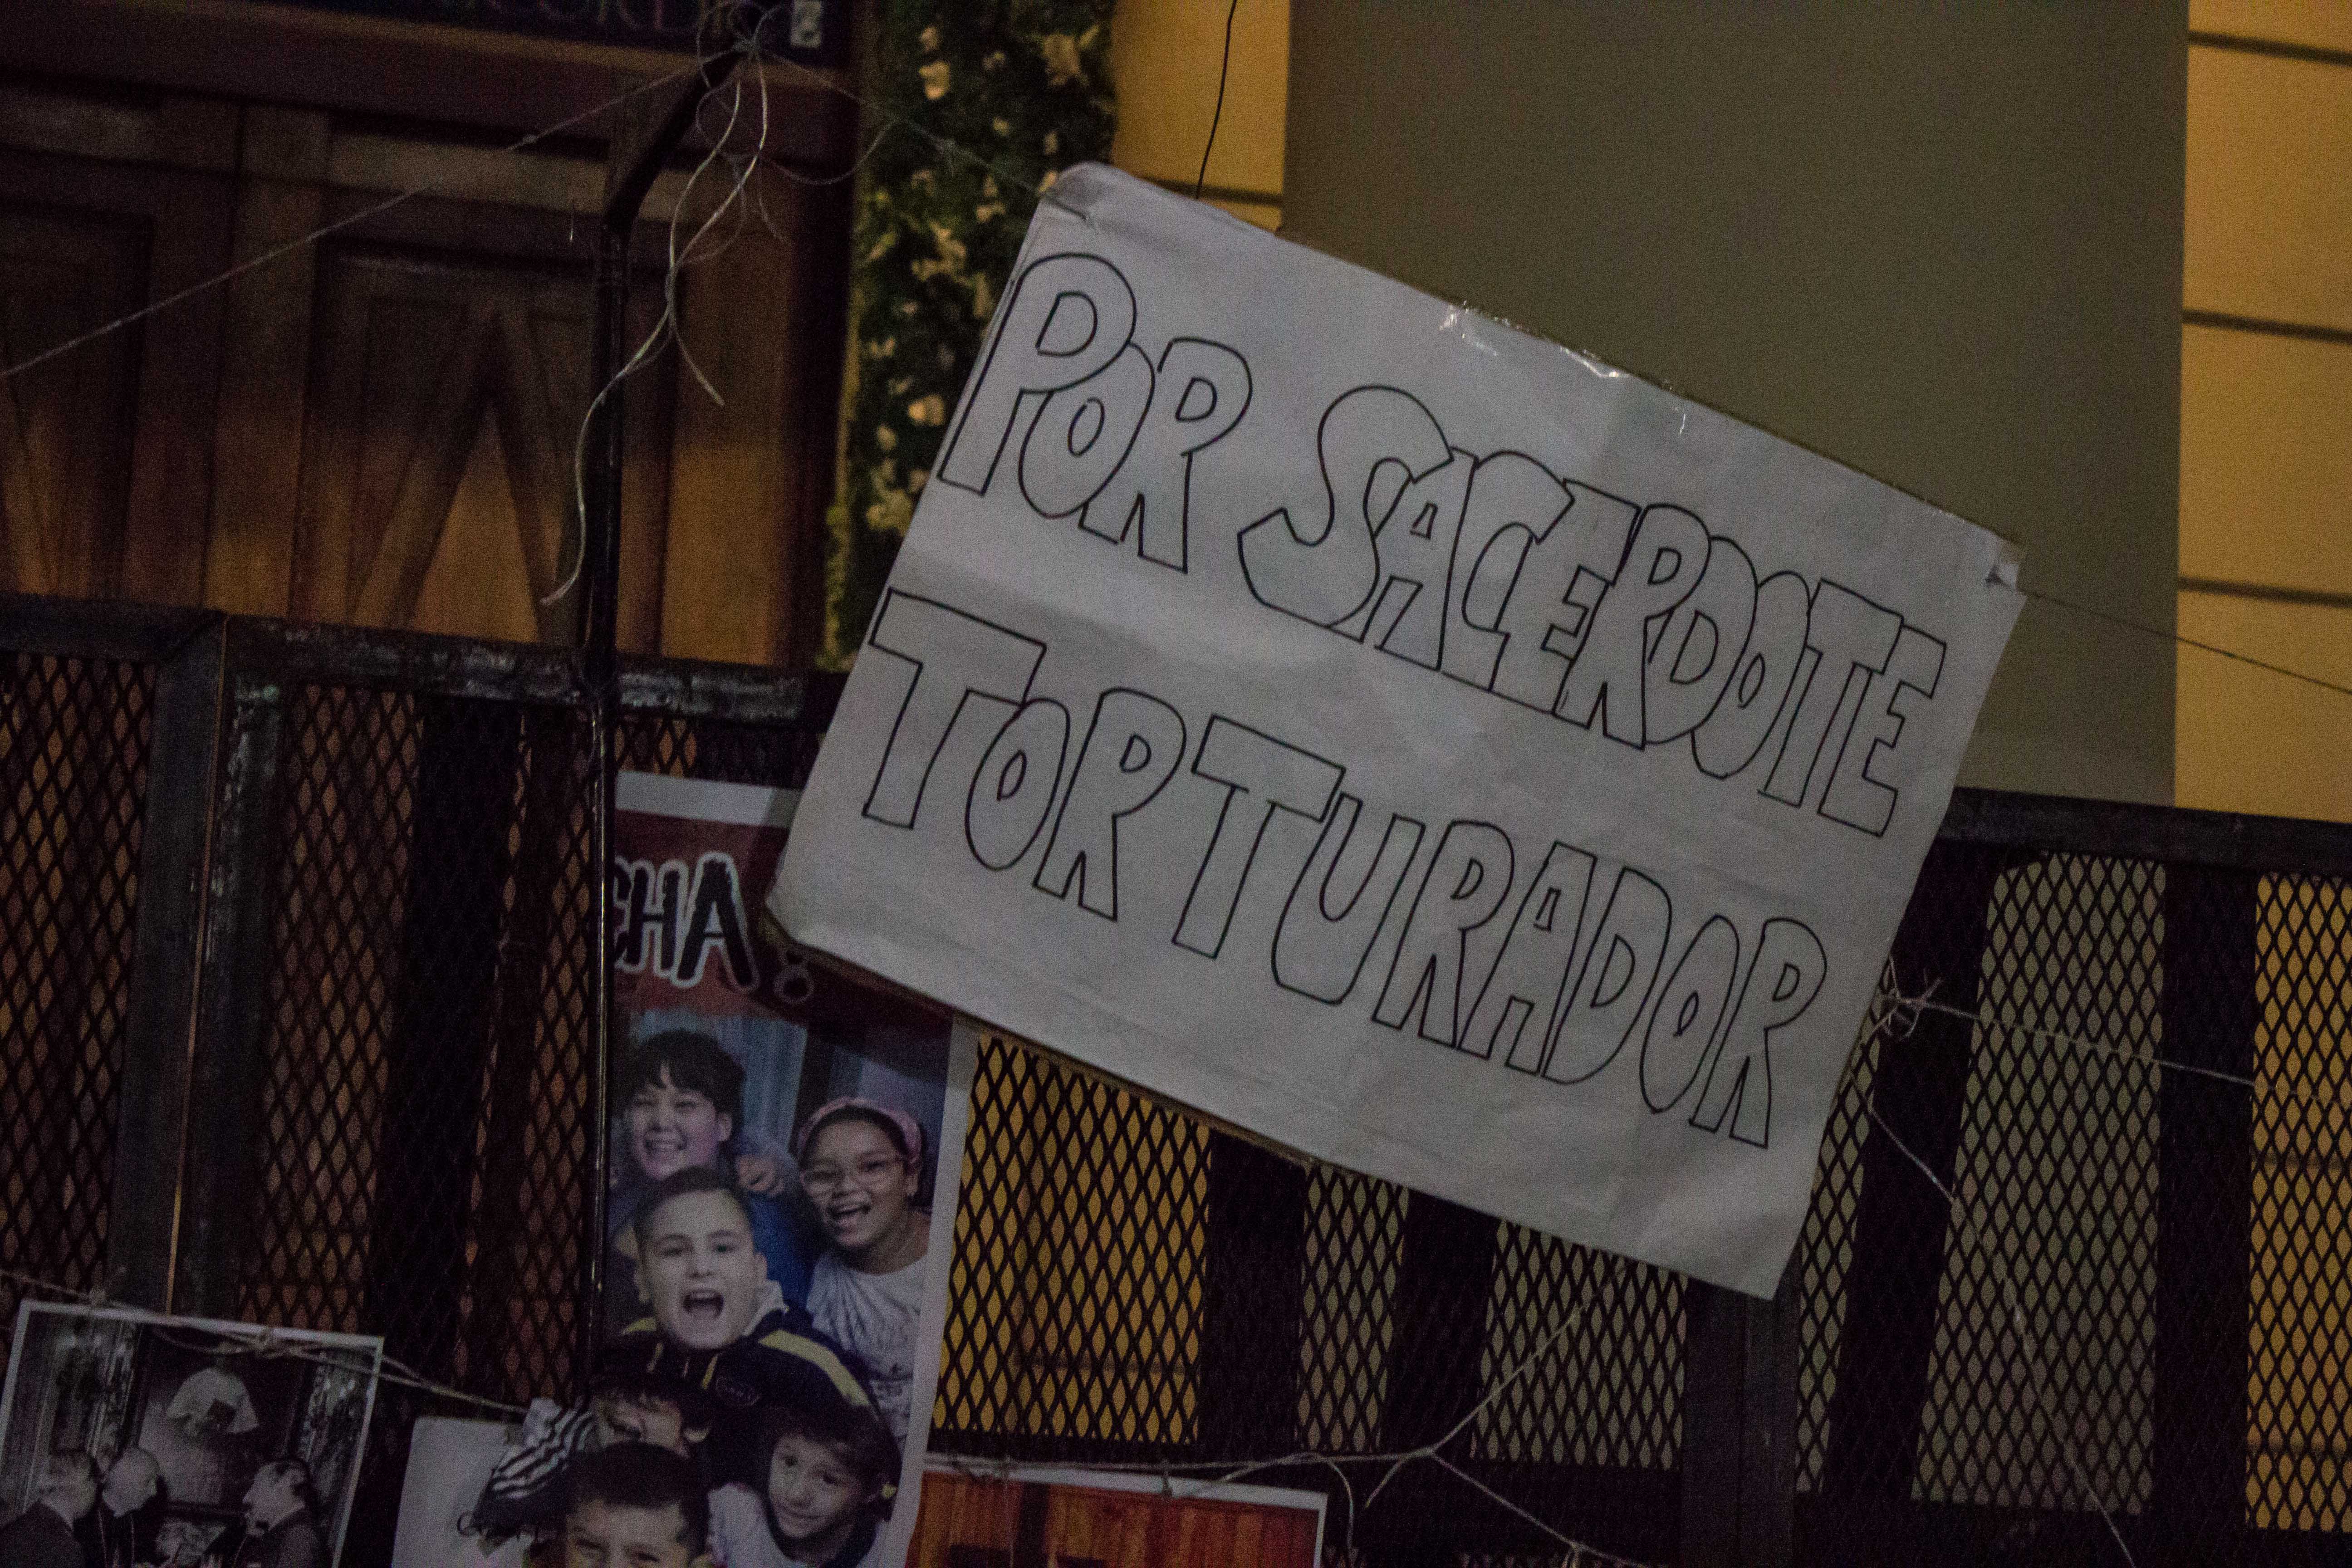 POR SACERDOTE
TORTURADOR
CHA!